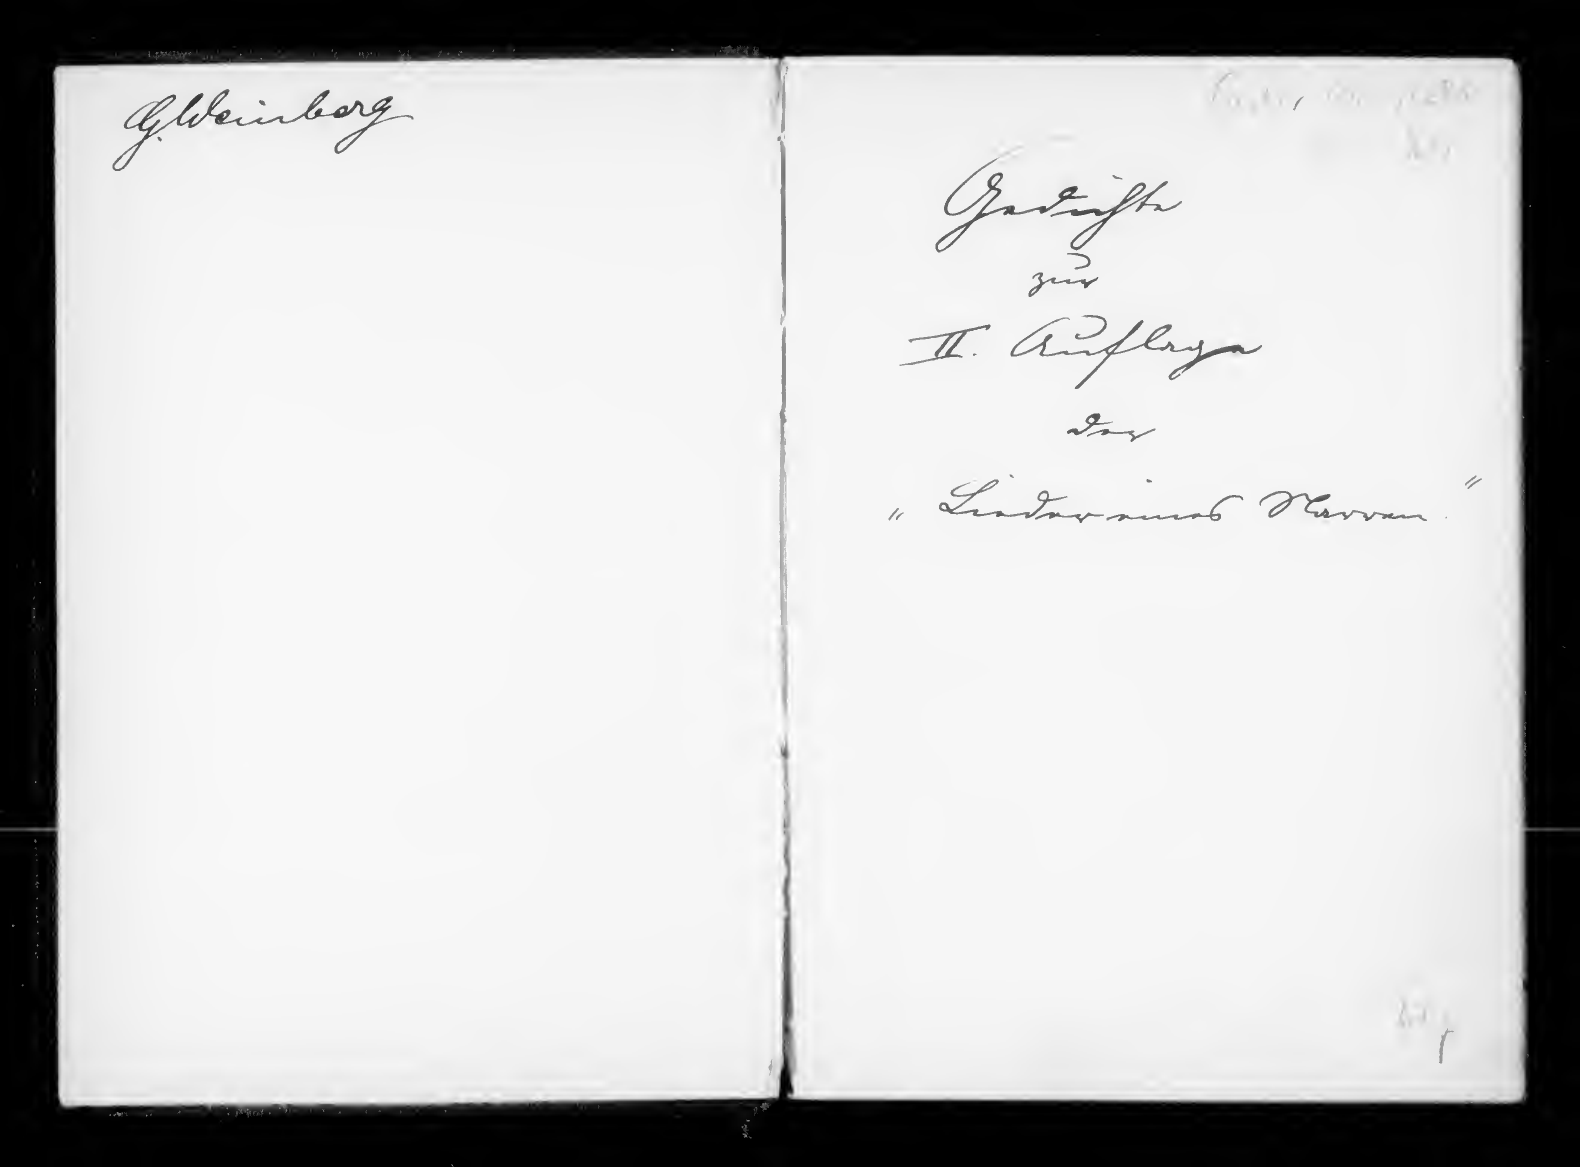 G. Weinberg
Gedichte
zur
II. Auflage
der
„Lieder eines Narren."